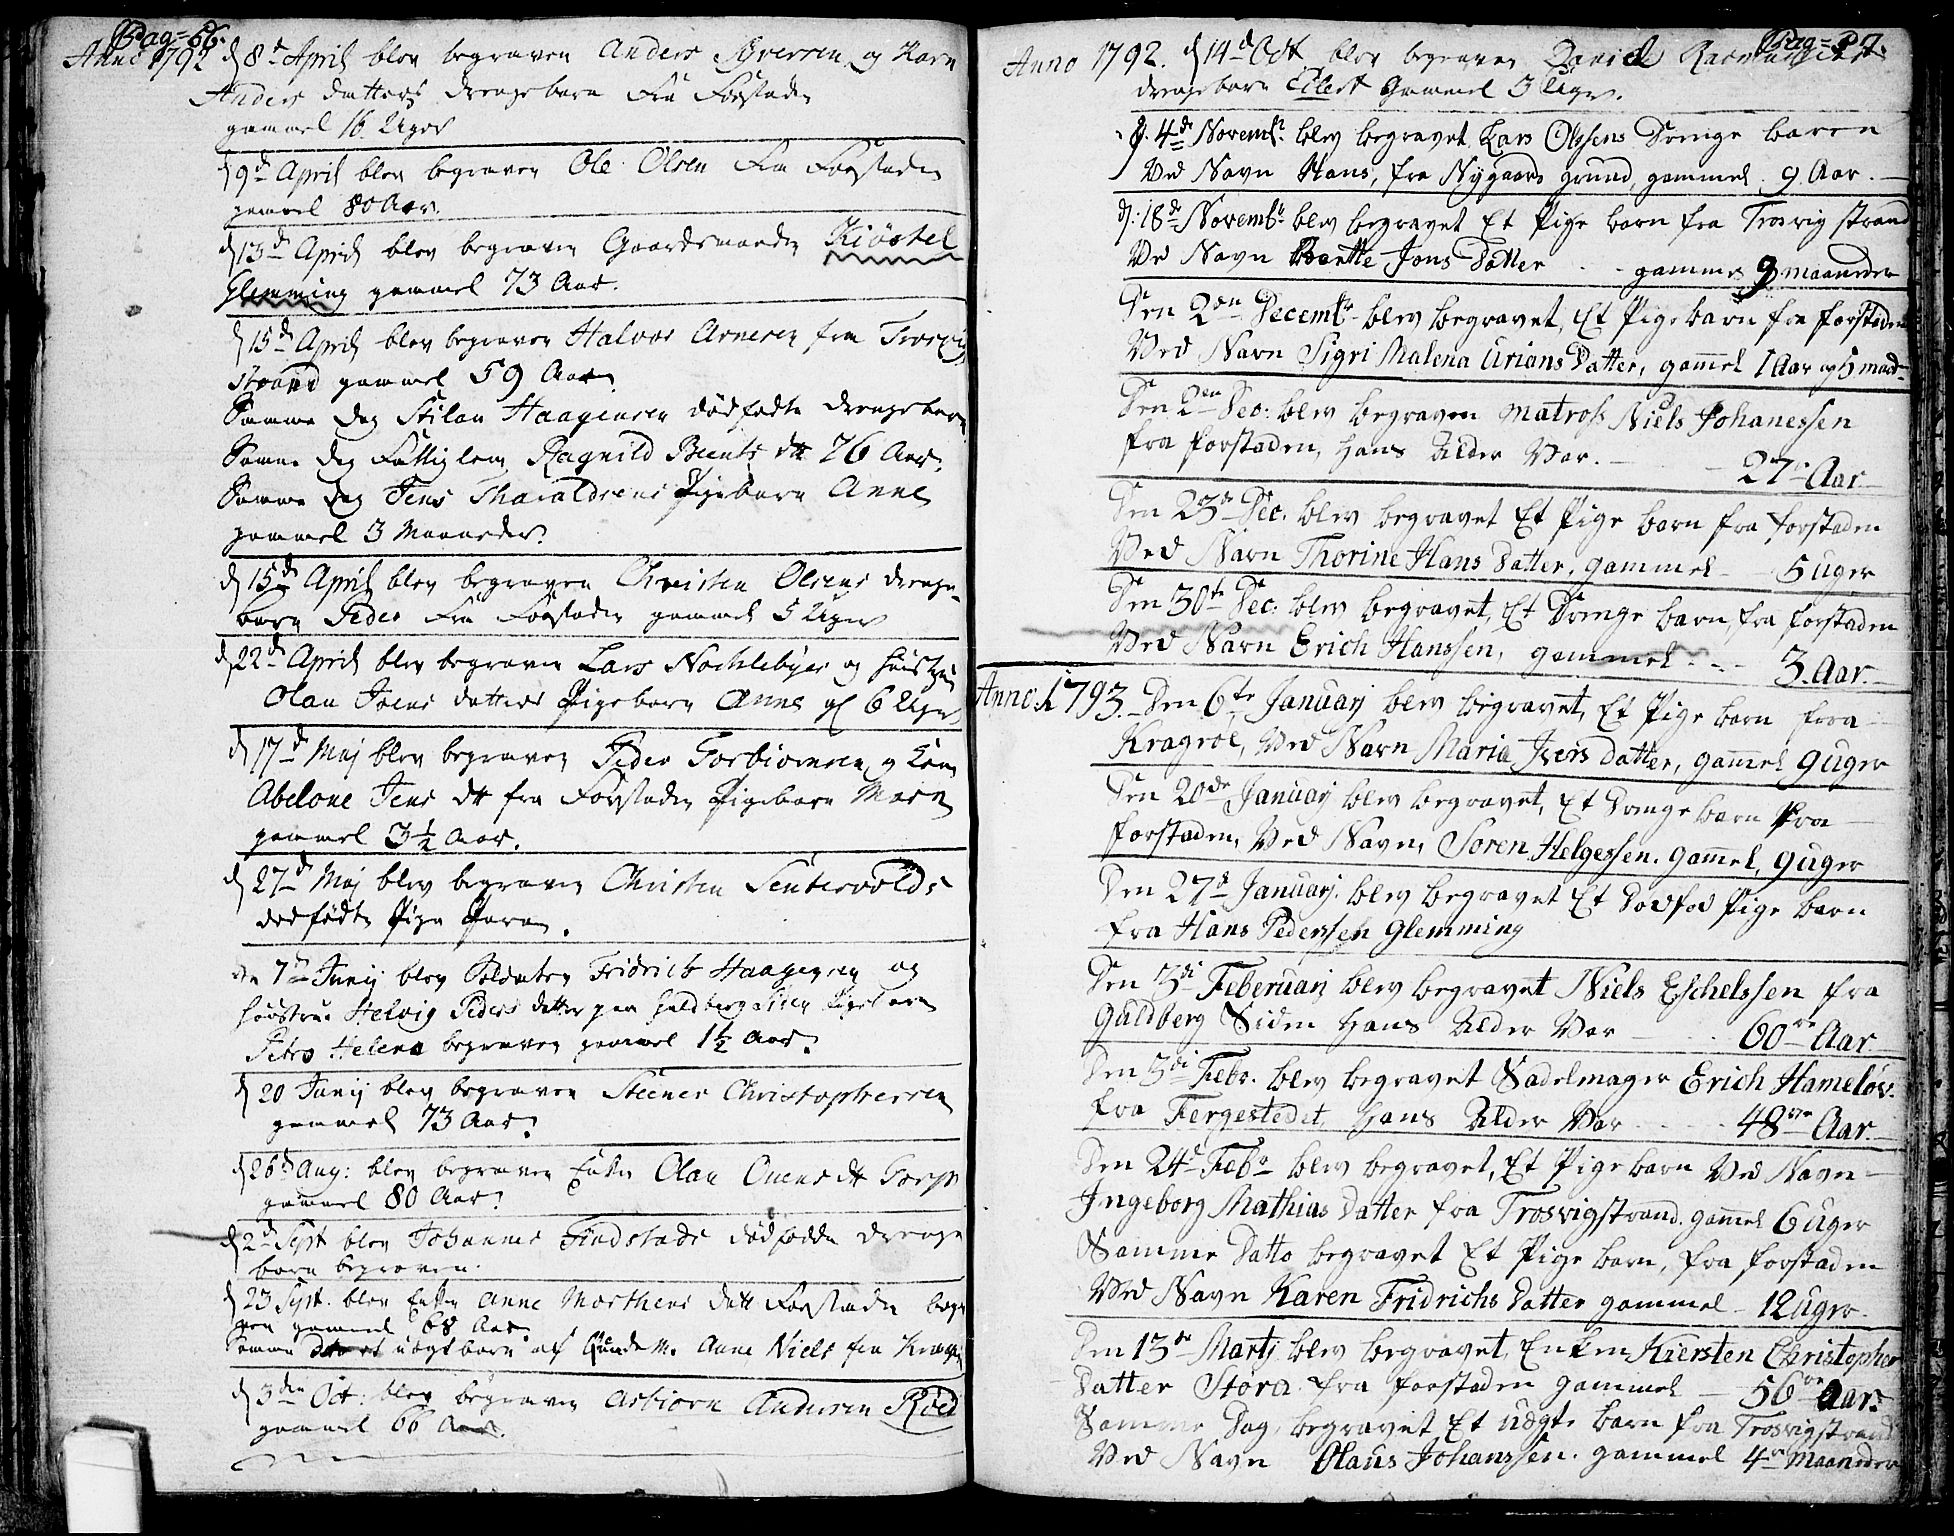 Pag=66.
Anno 1792 d 8d April blev begraven Anders Syversen og Karn
Anders datters drengebarn Fra Forstaden
gammel 16 Uger
d 9d April blev begraven Ole Olsen Fra Forstaden
gammel 80 Aar.
d 13d April blev begraven Gaardmanden Kiöstel
Glemming gammel 73 Aar.
d 15d April blev begraven Halvor Arnesen fra Trosvig
strand gammel 59 Aar.
Samme dag Stilau Haagensen dödfödte drengebarn
Samme dag Fattiglem Ragnild Bents dtt 76 Aar.
Samme dag Jens Tharaldsens Pigebarn Anne
gammel 3 Maaneder.
d 15d April blev begraven Christen Olsens drenge-
barn Peder Fra Forstaden gammel 5 Uger
d 22d April blev begraven Lars Nochlebyes og Hustru
Olau Jens datters Pigebarn Anne gl 6 Uger
d 17d Maj blev begraven Peder Torbiornsen og Kone
Abelone Jens dtt fra Forstaden Pigebarn Maren
gammel 3½ Aar.
d 27d Maj blev begraven Christen Sentervolds
dødfödte Pige Barn.
den 7de Junij blev Soldaten Fridrich Haagensen og
Hustrue Helvig Peders datter paa Guldberg Siden Pigebarn
Petro Helena begraven gammel 1½ Aar.
d 20 Junij blev begraven Steener Christophersen
gammel 73 Aar.
d 26d Aug: blev begraven Enken Olau Ouens dtt
gammel 80 Aar.
d 2d Sept blev Johannes Findstads dödfödde drenge
barn begraven.
d 23 Sept. blev Enken Anne Morthens datt Forstaden begra
ven gammel 68 Aar.
Samme uægt barn af Anne Niels fra
d 3den Oct: blev begraven Asbiorn Andersen Röed
gammel 66 Aar.
Pag=67.
Anno 1792. d 14d Oct blev begraven Daniel Rasmusens
drengebarn Eilert Gammel 3 Uger.
d. 4de Novembr. blev begravet Lars Olssens Drenge baren
Ved Navn Hans, fra Nygaards grund, gammel. 9 Aar.
d. 18de Novembr. blev begravet Et Pige barn fra Trosvig strand
Ved Navn Berthe Jons Datter - - gammel 9 maaneder
Den 2den Decembr. blev begravet, Et Pige barn fra forstaden
Ved Navn Sigri Malena Urians Datter, gammel 1 Aar og 5 maad.
Den 2en Dec: blev begraven matross Niels Johanessen
fra forstaden, hans Alder Var. - - 27 Aar
Den 23de Dec. blev begravet Et Pige barn fra forstaden
Ved Navn Thorine Hans Datter, gammel - 5 uger
Den 30te Dec. blev begravet, Et Drenge barn, fra forstaden
Ved Navn Erich Hanssen, gammel - - - 3. Aar.
Anno. 1793. Den 6te Januarj blev begravet, Et Pige barn fra
Kragröe, Ved Navn Maria Ivers Datter, gammel 9 uger
Den 20de Januarj blev begravet, Et Drenge barn fra
forstaden, Ved Navn, Soren Helgessen. gammel, 9 uger
Den 27d Januarj. blev begravet Et Dødfød Pige barn
fra Hans Pederssen Glemming
Den 3di Feberuarj blev begravet Niels Eschelssen fra
Guldberg Siden hans Alder Var - - 60re Aar
Den 3di Febr. blev begravet Sadelmager Erich Hamelöv.
fra Fergestedet, hans Alder Var - - 48re Aar.
Den 24d Febr blev begravet, Et Pige barn Ved Navn
Ingeborg Mathias Datter fra Trosvigstrand. gammel 6 uger
Samme Datto begravet Et Pige barn, fra forstaden
Ved Navn Karen Fridrichs Datter gammel - 12 uger.
Den 13de Martj blev begravet, Enken Kiersten Christopher
Datter Störa fra forstaden gammel - 56re Aar.
Samme Dag, begravet Et uægte barn fra Trosvigstrand
Ved Navn Olaus Johanssen. gammel 4re maaneder